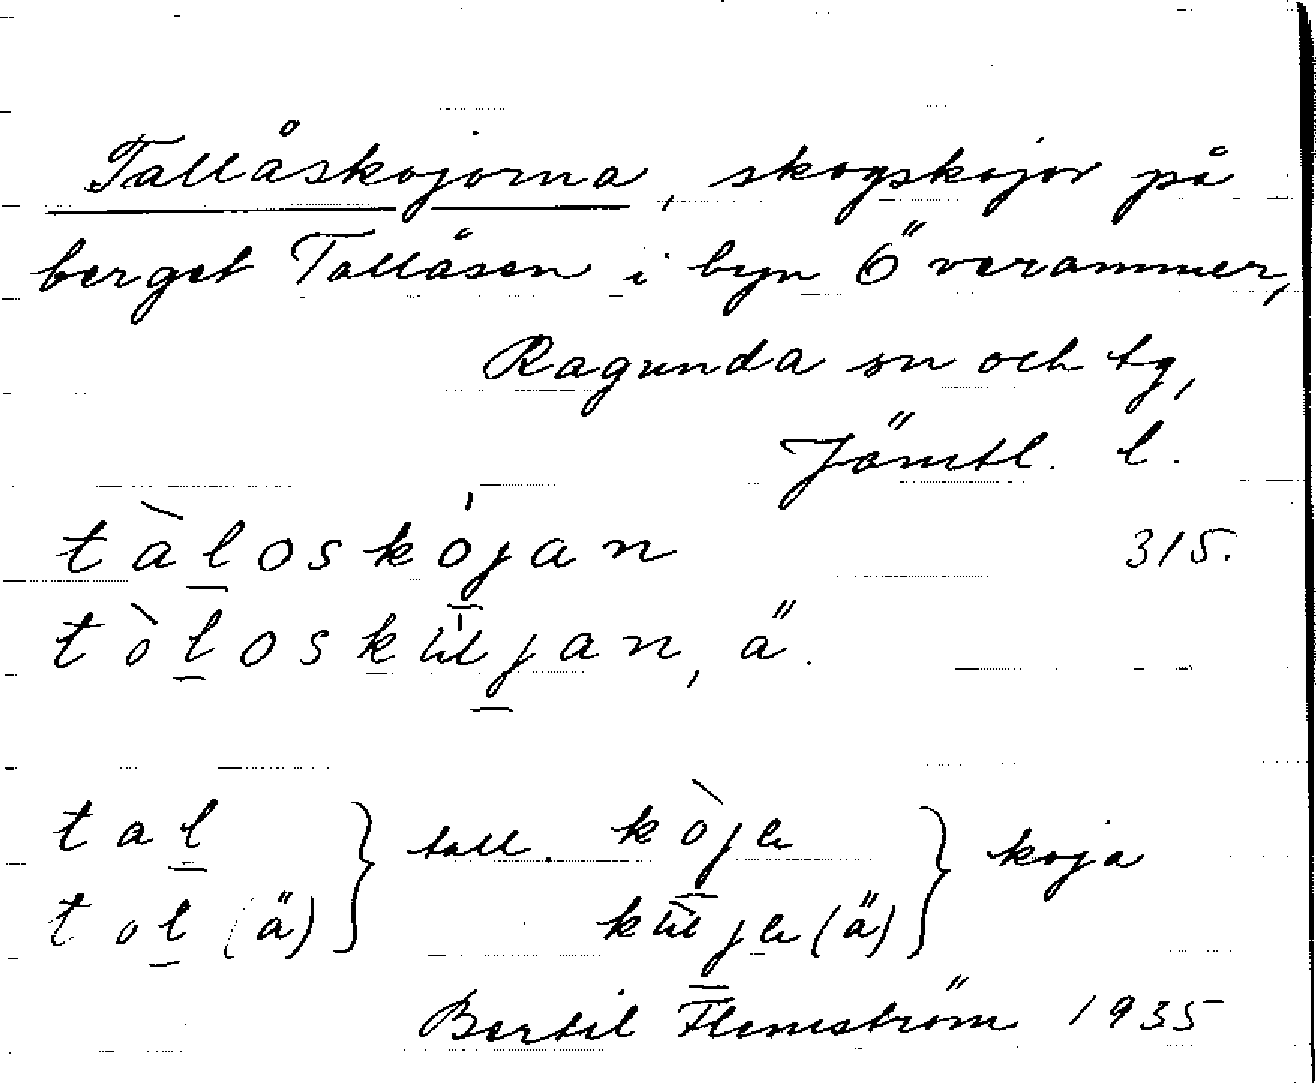 Tallåskojorna, skogskojor på
berget Tallåsen i byn Överammer,
Ragunda sn och tg,
Jämtl. l.
tàloskójan 315.
tòloskúujan, ä.
tal } tall. kòja } koja
tol (ä) kùuja (ä)
Bertil Flemström 1935